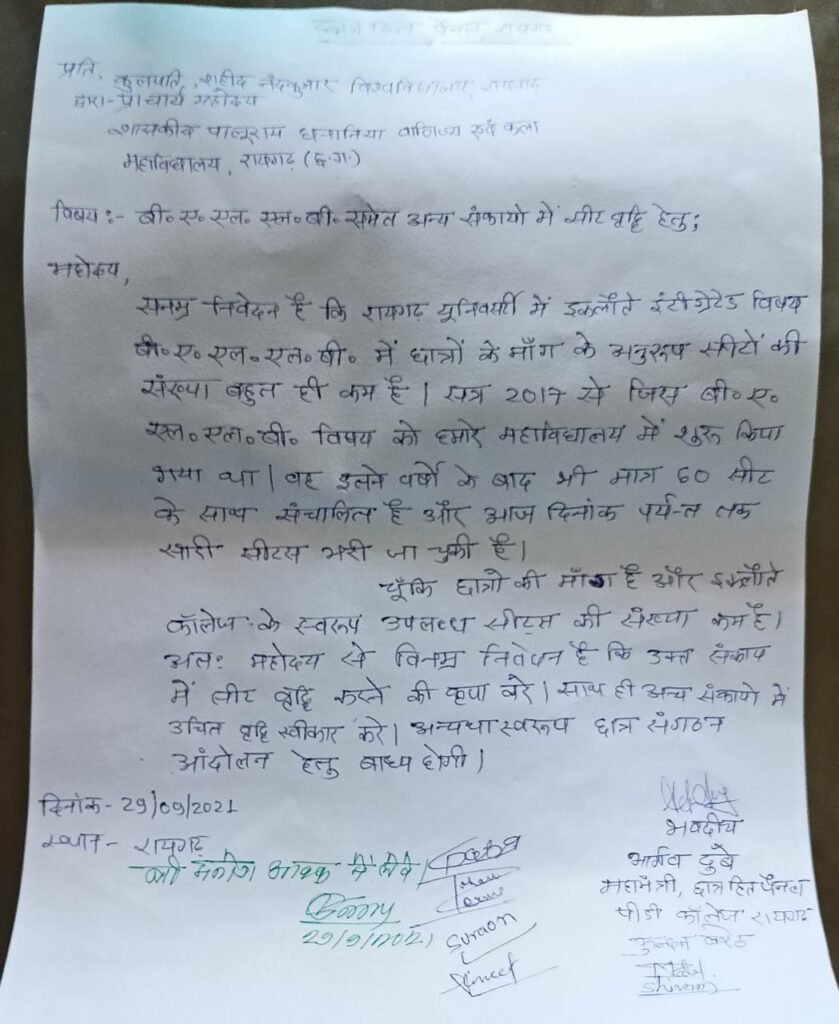 छात्र हित पैनल, रायगढ़
प्रति,
कुलपति, शहीद नंदकुमार विश्वविद्यालय, रायगढ़
द्वारा - प्राचार्य महोदय
शासकीय पालूराम धनानिया वाणिज्य एवं कला
महाविद्यालय, रायगढ़ (छ.ग.)
विषय :- बी॰ए॰एल॰एल॰बी॰ समेत अन्य संकायो में सीट वृद्धि हेतु;
महोदय,
सनम्र निवेदन है कि रायगढ़ यूनिवर्सटी में इकलौते इंटीग्रेटेड विषय
बी॰ए॰एल॰एल॰बी॰ में छात्रों के माँग के अनुरूप सीटों की
संख्या बहुत ही कम है। सत्र 2017 से जिस बी॰ए॰
एल॰एल॰बी॰ विषय को हमारे महाविद्यालय में शुरू किया
गया था। वह इतने वर्षो के बाद भी मात्र 60 सीट
के साथ संचालित है और आज दिनांक पर्यन्त तक
सारी सीटस भरी जा चुकी है।
चूँकि छात्रो की माँग है और इकलौते
कॉलेज के स्वरूप उपलब्ध सीट्स की संख्या कम है।
अतः महोदय से विनम्र निवेदन है कि उक्त संकाय
में सीट वृद्धि करने की कृपा करे। साथ ही अन्य संकायो में
उचित वृद्धि स्वीकार करे। अन्यथा स्वरूप छात्र संगठन
आंदोलन हेतु बाध्य होगी।
दिनांक - 29/09/2021
स्थान - रायगढ़
श्री मनोज
29/9/2021
Suraon
भवदीय
भार्गव दुबे
महामंत्री, छात्र हित पैनल
पीडी कॉलेज रायगढ़
Shivam